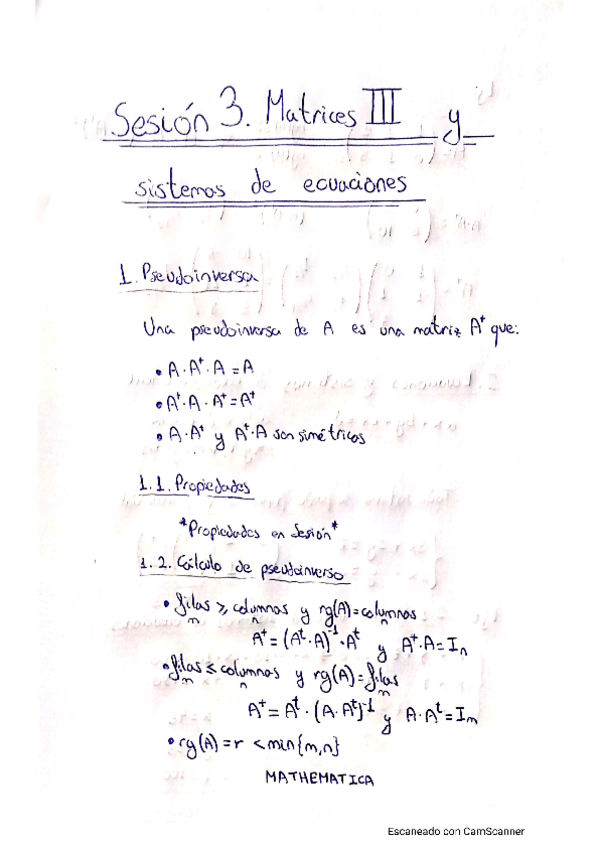 Sesión 3. Matrices III y
sistemas de ecuaciones
1. Pseudoinversa
Una pseudoinversa de A es una matriz A⁺ que:
• A·A⁺·A = A
• A⁺·A·A⁺ = A⁺
• A·A⁺ y A⁺·A son simétricos
1.1. Propiedades
*Propiedades en Sesión*
1.2. Cálculo de pseudoinversa
• filas ≥ columnas y rg(A) = columnas
m n n
A⁺ = (Aᵗ·A)⁻¹·Aᵗ y A⁺·A = Iₙ
• filas ≤ columnas y rg(A) = filas
m n m
A⁺ = Aᵗ·(A·Aᵗ)⁻¹ y A·Aᵗ = Iₘ
• rg(A) = r < min{m,n}
MATHEMATICA
Escaneado con CamScanner